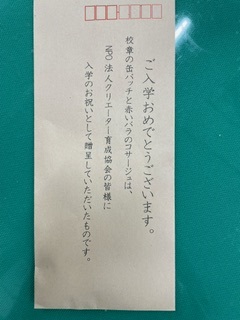 ご入学おめでとうございます。
校章の缶バッチと赤いバラのコサージュは、
NPO法人クリエーター育成協会の皆様に
入学のお祝いとして贈呈していただいたものです。